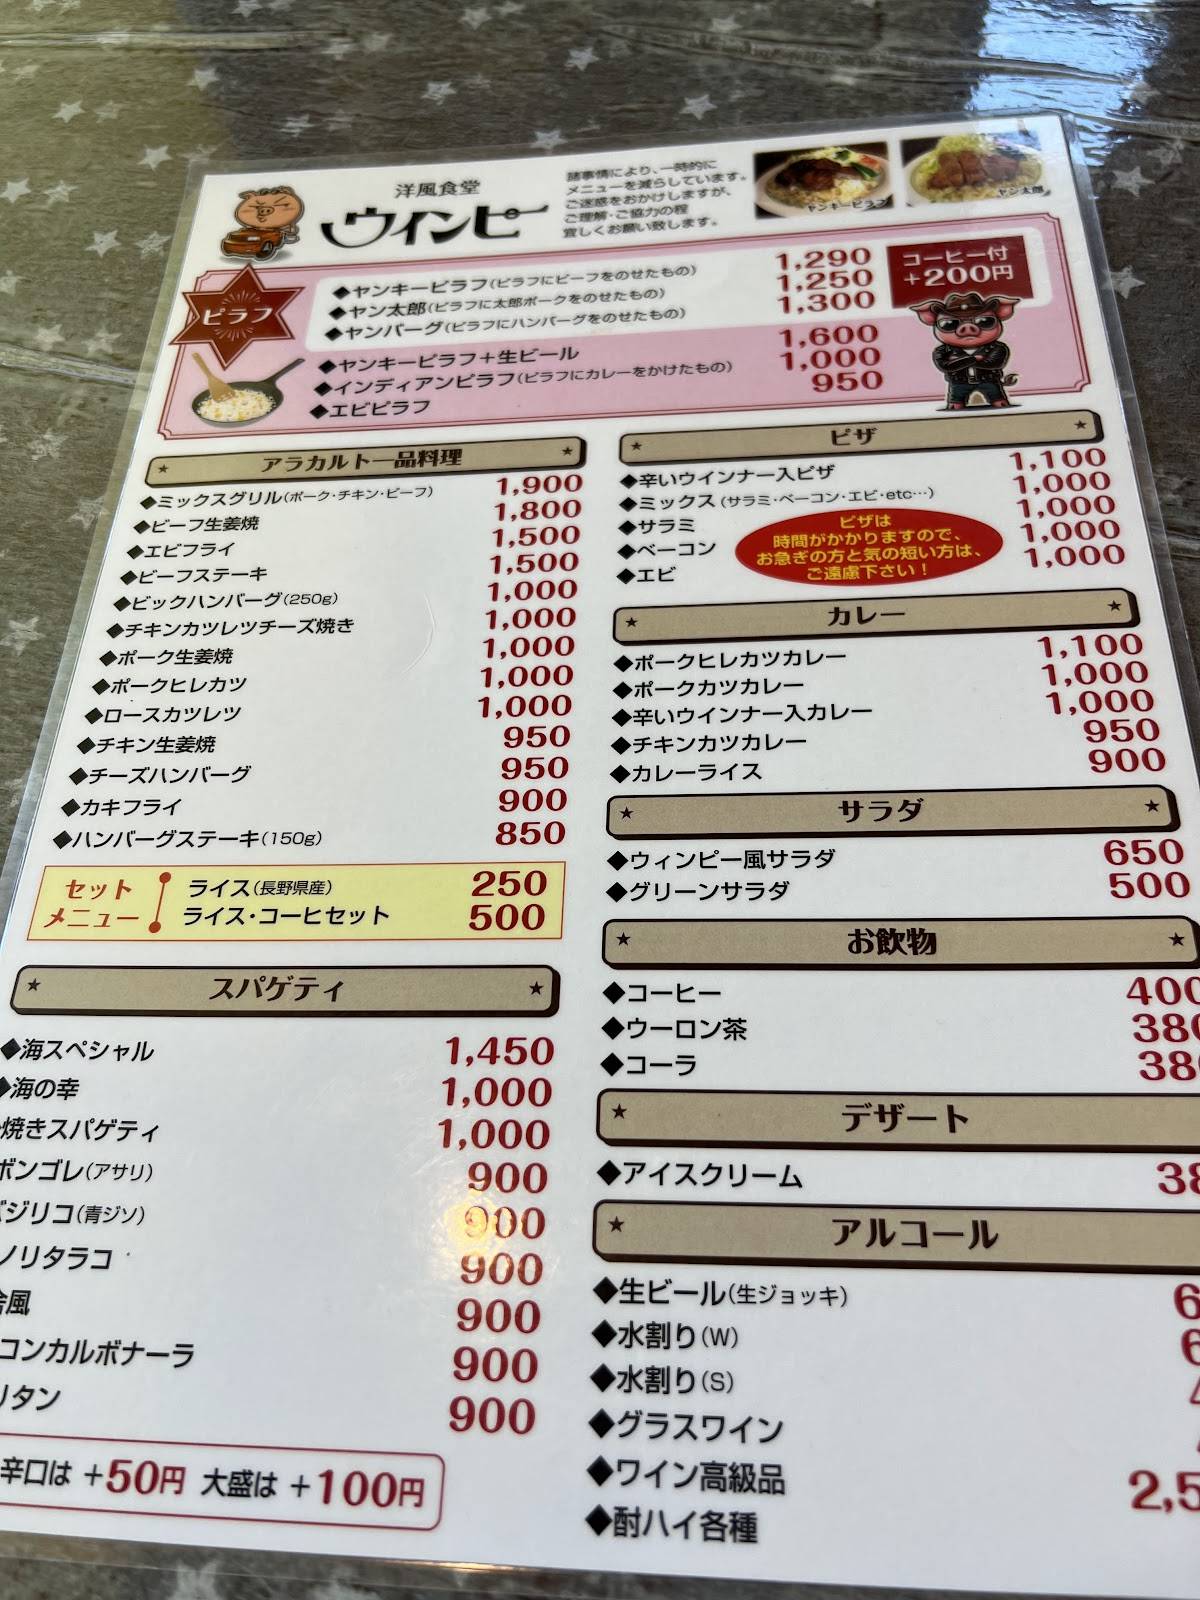 洋風食堂
ウインピー
諸事情により、一時的に
メニューを減らしています。
ご迷惑をおかけしますが、
ご理解・ご協力の程
宜しくお願い致します。
ヤンキーピラフ
ヤン太郎
ピラフ
◆ヤンキーピラフ(ピラフにビーフをのせたもの) 1,290
◆ヤン太郎(ピラフに太郎ポークをのせたもの) 1,250
◆ヤンバーグ(ピラフにハンバーグをのせたもの) 1,300
コーヒー付
+200円
◆ヤンキーピラフ+生ビール 1,600
◆インディアンピラフ(ピラフにカレーをかけたもの) 1,000
◆エビピラフ 950
アラカルト一品料理
◆ミックスグリル(ポーク・チキン・ビーフ) 1,900
◆ビーフ生姜焼 1,800
◆エビフライ 1,500
◆ビーフステーキ 1,500
◆ビックハンバーグ(250g) 1,000
◆チキンカツレツチーズ焼き 1,000
◆ポーク生姜焼 1,000
◆ポークヒレカツ 1,000
◆ロースカツレツ 1,000
◆チキン生姜焼 950
◆チーズハンバーグ 950
◆カキフライ 900
◆ハンバーグステーキ(150g) 850
セット
メニュー
ライス(長野県産) 250
ライス・コーヒセット 500
スパゲティ
◆海スペシャル 1,450
◆海の幸 1,000
焼きスパゲティ 1,000
ボンゴレ(アサリ) 900
バジリコ(青ジソ) 900
ノリタラコ 900
舎風 900
コンカルボナーラ 900
リタン 900
辛口は +50円 大盛は +100円
ピザ
◆辛いウインナー入ピザ 1,100
◆ミックス(サラミ・ベーコン・エビ・etc…) 1,000
◆サラミ 1,000
◆ベーコン 1,000
◆エビ 1,000
ピザは
時間がかかりますので、
お急ぎの方と気の短い方は、
ご遠慮下さい!
カレー
◆ポークヒレカツカレー 1,100
◆ポークカツカレー 1,000
◆辛いウインナー入カレー 1,000
◆チキンカツカレー 950
◆カレーライス 900
サラダ
◆ウィンピー風サラダ 650
◆グリーンサラダ 500
お飲物
◆コーヒー 400
◆ウーロン茶 380
◆コーラ 380
デザート
◆アイスクリーム 38
アルコール
◆生ビール(生ジョッキ) 6
◆水割り(W) 6
◆水割り(S)
◆グラスワイン
◆ワイン高級品 2,5
◆酎ハイ各種